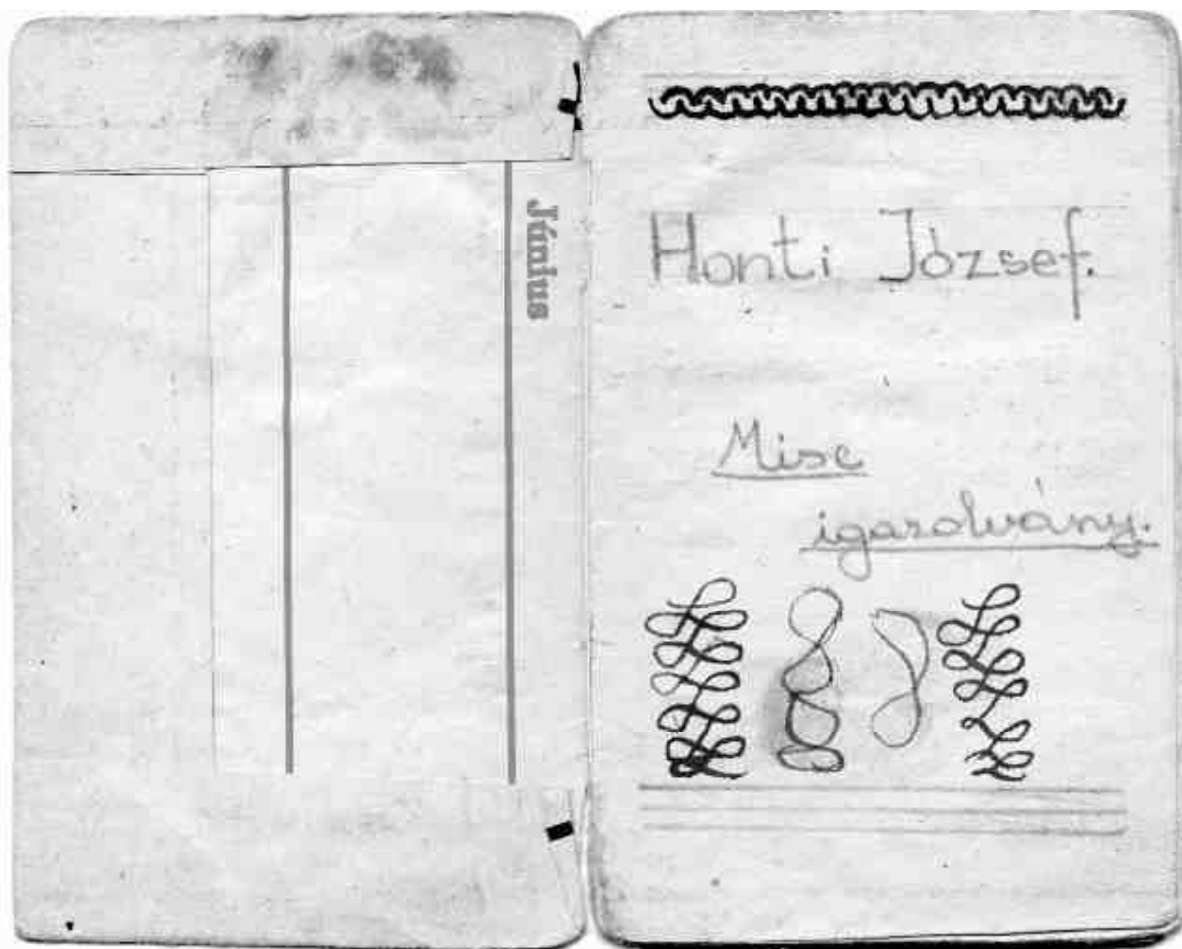 Június
Honti József.
Mise
igazolvány.